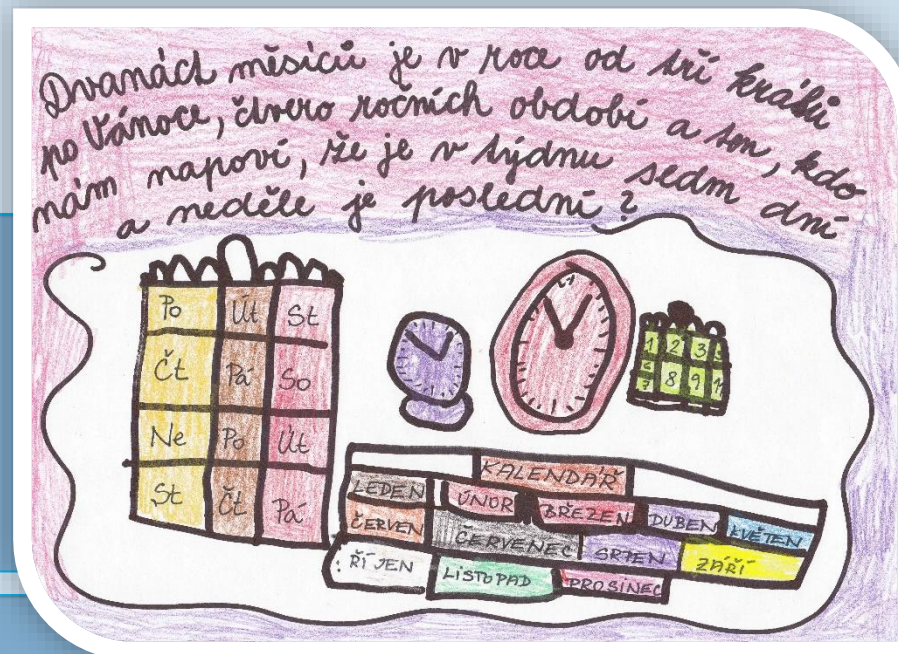 Dvanáct měsíců je v roce od tří králů
po Vánoce, čtvero ročních období a ten, kdo
nám napoví, že je v týdnu sedm dní
a neděle je poslední?
Po Út St
Čt Pá So
Ne Po Út
St Čt Pá
1 2 3
8 9
KALENDÁŘ
LEDEN ÚNOR BŘEZEN DUBEN KVĚTEN
ČERVEN ČERVENEC SRPEN ZÁŘÍ
ŘÍJEN LISTOPAD PROSINEC